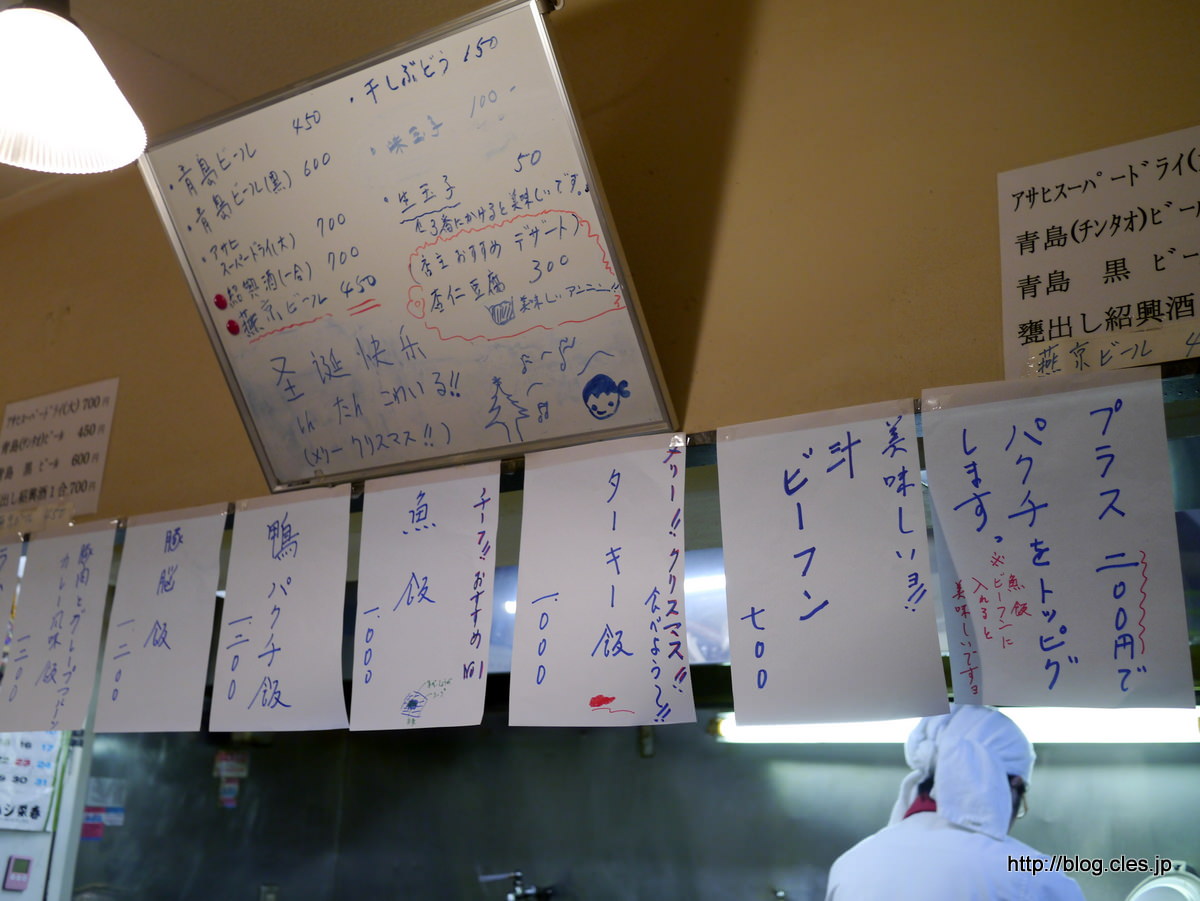 ・青島ビール 450
・青島ビール(黒) 600
・アサヒ
スーパードライ(大) 700
紹興酒(一合) 700
燕京ビール 450
・干しぶどう 150
100-
・生玉子 50
(店主おすすめ デザート)
杏仁豆腐 300
美味しいアンニン!!
圣诞快乐
(メリークリスマス!!)
アサヒスーパードライ(
青島(チンタオ)ビー
青島 黒 ビー
甕出し紹興酒
燕京ビール 4
アサヒスーパードライ(大) 700円
青島(チンタオ)ビール 450円
青島 黒 ビール 600円
出し紹興酒1合700円
プラス 二〇〇円で
パクチをトッピング
します。
※魚飯
ビーフンに
入れると
美味しいですョ
美味しいョ!!
汁
ビーフン
七〇〇
メリー!!クリスマス!!
食べよう〜!!
ターキー飯
一.〇〇〇
チーフ!!おすすめ No1
魚飯
一.〇〇〇
鴨パクチ飯
一.二〇〇
豚脳飯
一.二〇〇
カレー風味飯
一.二〇〇
http://blog.cles.jp